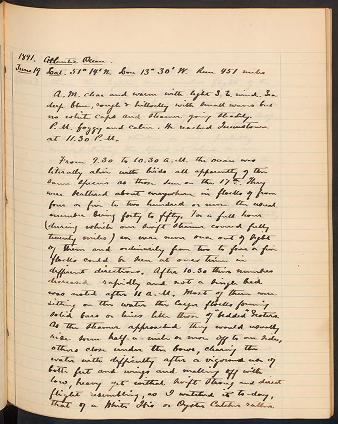 1891. Atlantic Ocean.
June 19 Lat. 51° 14' N. Lon 13° 30' W. Run 451 miles
A.M. clear and warm with light S. E. wind. Sea
deep blue, rough & billowy with small waves but
no white caps and steamer going steadily.
P.M. foggy and calm. We reached Queenstown
at 11.30 P.M.
From 9.30 to 10.30 A.M. the ocean was
literally alive with birds all apparently of the
same species as those seen on the 17th. They
were scattered about everywhere in flocks of from
four or five to two hundred or more the usual
number being forty to fifty. For a full hour
(during which our swift steamer covered fully
twenty miles) we were never once out of sight
of them and ordinarily from two to four or five
flocks could be seen at once in
different directions. After 10.30 their numbers
decreased rapidly and not a single bird
was noted after 11 A.M. Most of them were
sitting on the water the larger flocks forming
solid bars or lines like those of "bedded" Scoters.
As the steamer approached they would usually
rise some half a mile or more off to our side,
others close under the bows, clearing the
water with difficulty after a vigorous use of
both feet and wings and making off with
low, heavy yet swift strong and direct
flight resembling, as I watched it to-day,
that of a White Ibis or Oyster Catcher rather